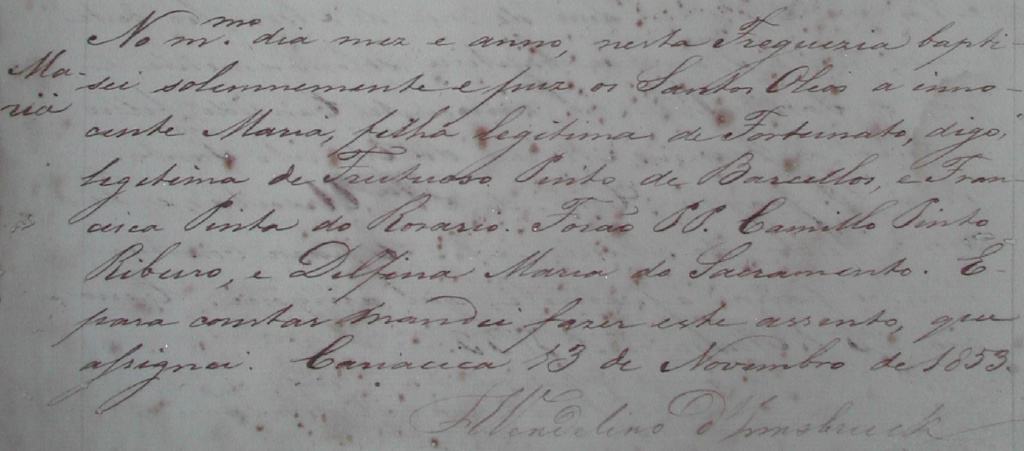 No m.mo dia mez e anno, nesta Freguezia bapti-
Ma- sei solemnemente e puz os Santos Oleos a inno-
ria
cente Maria, filha legitima de Fortunato, digo,
legitima de Fructuoso Pinto de Barcellos, e Fran-
cisca Pinta do Rosario. Forão PP. Camillo Pinto
Ribeiro, e Delfina Maria do Sacramento. E
para constar mandei fazer este assento, que
assignei. Cariacica 13 de Novembro de 1853.
Fr Wendelino d'Innsbruck